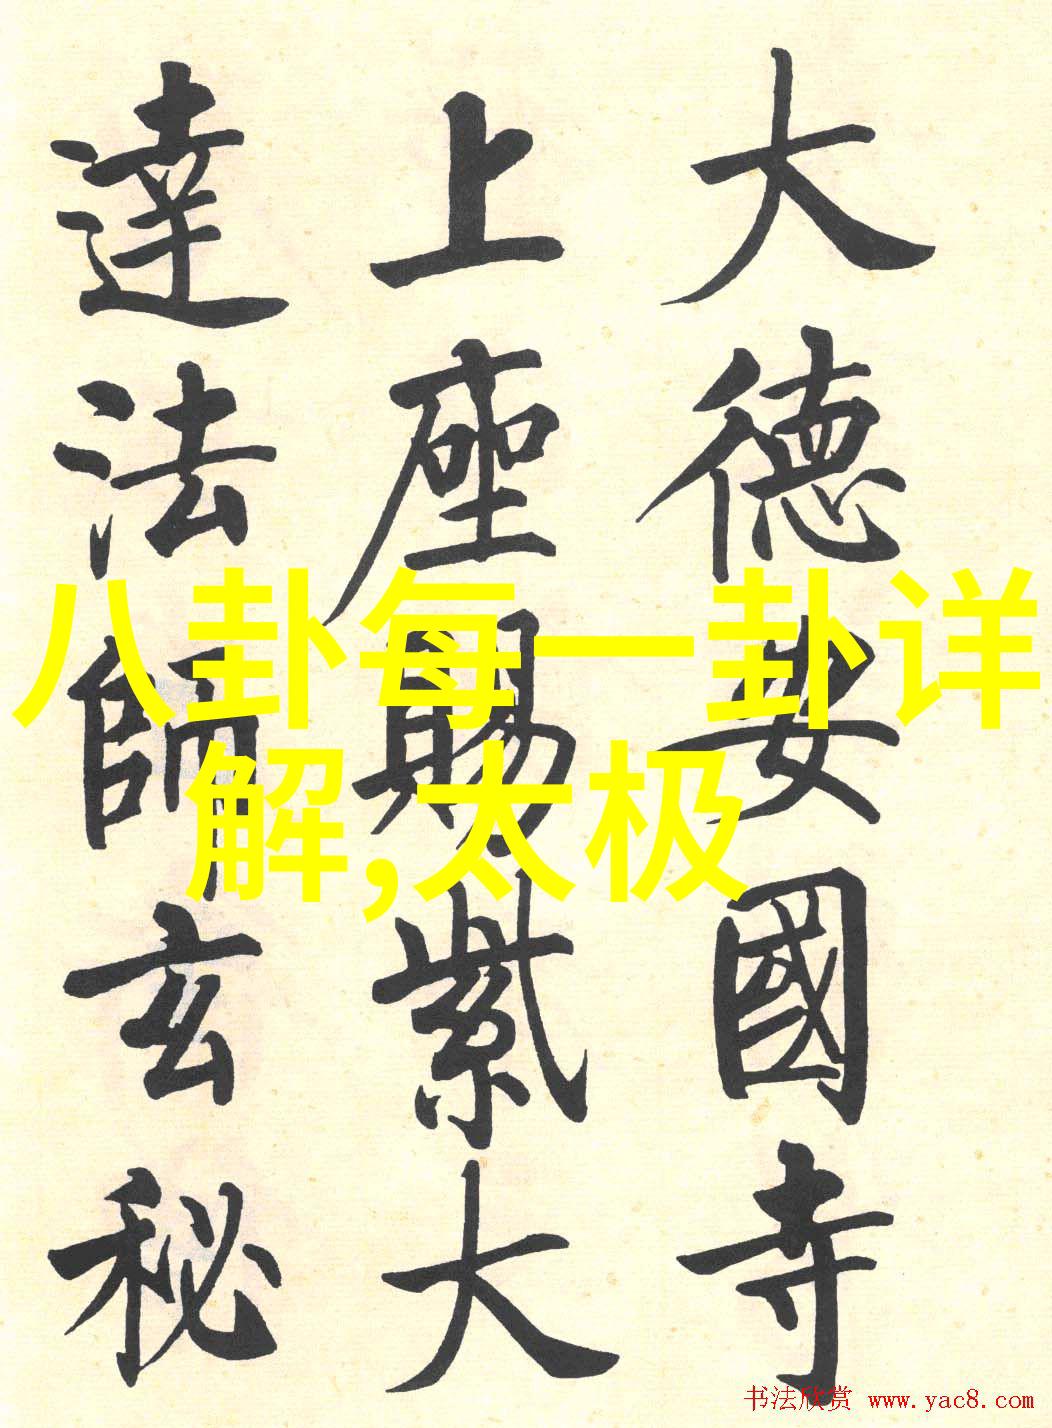 大德安國寺
上座賜紫大
達法師玄秘
八卦每一卦详
解,太极
书法欣赏 www.yac8.com